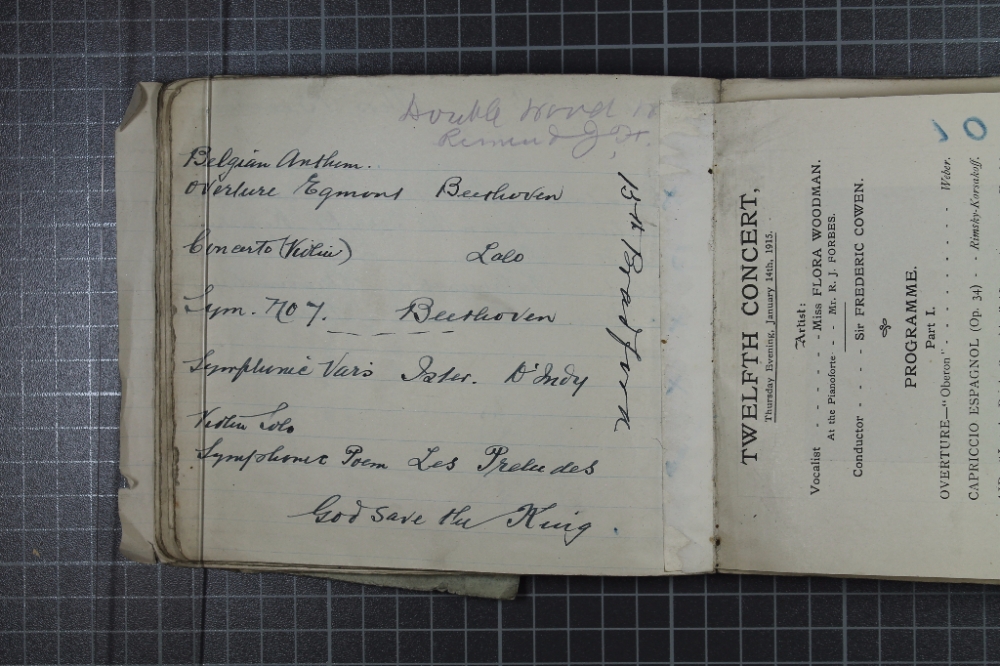 Double Wood
Remind J. H.
Belgian Anthem.
Overture Egmont Beethoven
Concerto (Violin) Lalo
Sym. No 7. Beethoven
Symphonic Vars Istar. D'Indy
Violin Solo
Symphonic Poem Les Preludes
God save the King.
Bradford
TWELFTH CONCERT,
Thursday Evening, January 14th, 1915.
Artist:
Vocalist - - - - - Miss FLORA WOODMAN.
At the Pianoforte - - Mr. R. J. FORBES.
Conductor - - - - Sir FREDERIC COWEN.
PROGRAMME.
Part I.
OVERTURE—"Oberon" . . . . . . . . . Weber.
CAPRICCIO ESPAGNOL (Op. 34) - - Rimsky-Korsakoff.